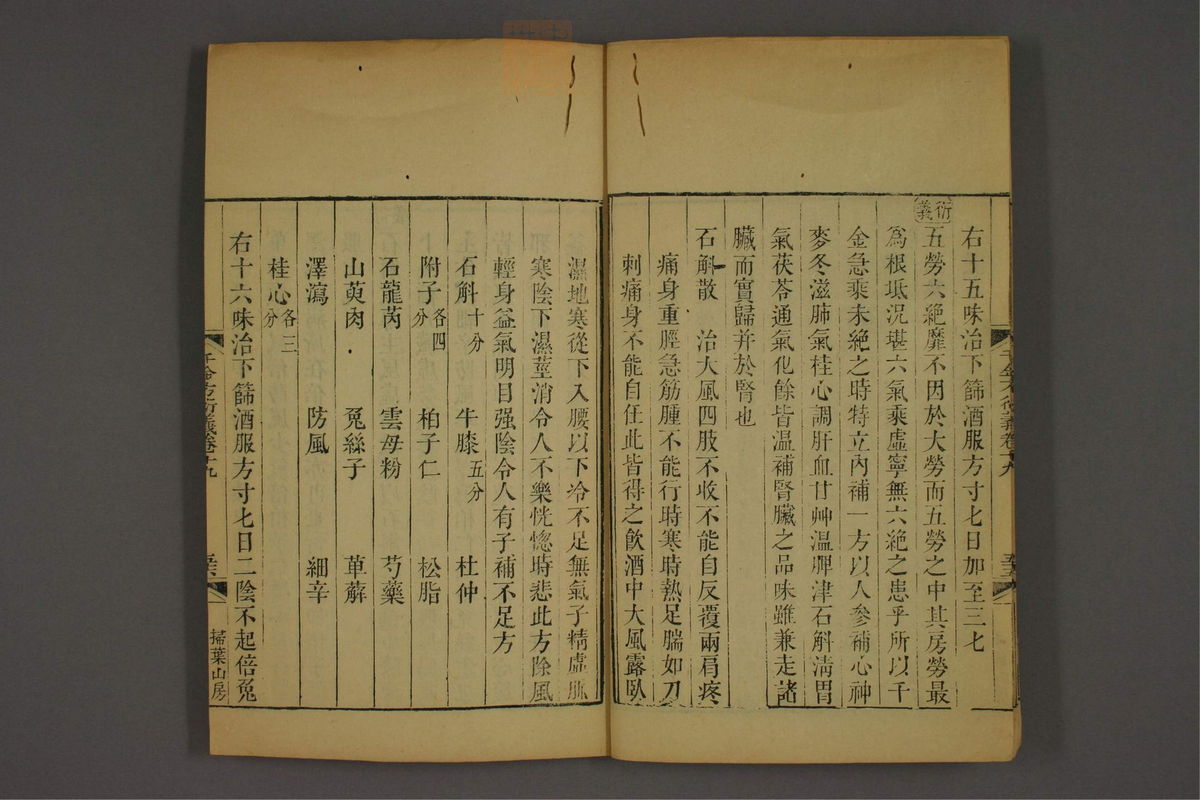 右十五味治下篩酒服方寸匕日加至三匕
衍義
五勞六絶靡不因於大勞而五勞之中其房勞最
爲根坻況堪六氣乘虛寧無六絶之患乎所以千
金急乘未絶之時特立內補一方以人參補心神
麥冬滋肺氣桂心調肝血甘艸溫脾津石斛淸胃
氣茯苓通氣化餘皆溫補腎臟之品味雖兼走諸
臟而實歸并於腎也
石斛散 治大風四肢不收不能自反覆兩肩疼
痛身重脛急筋腫不能行時寒時熱足腨如刀
刺痛身不能自任此皆得之飮酒中大風露臥
濕地寒從下入腰以下冷不足無氣子精虛脈
寒陰下濕莖消令人不樂恍惚時悲此方除風
輕身益氣明目强陰令人有子補不足方
石斛十分 牛膝五分 杜仲
附子各四分 柏子仁 松脂
石龍芮 雲母粉 芍藥
山萸肉 兔絲子 萆薢
澤瀉 防風 細辛
桂心各三分
右十六味治下篩酒服方寸匕日二陰不起倍兔
千金方衍義卷十九
掃葉山房